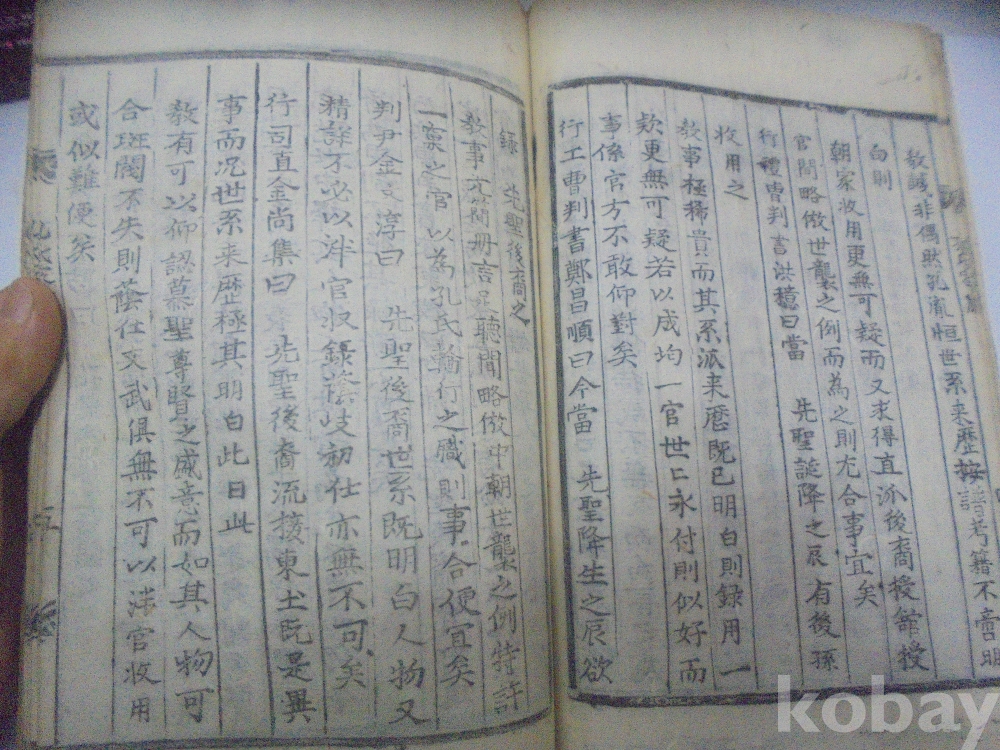 教諺非偶默孔胤恒世系来歴按譜考籍不啻明
白則
朝家收用更無可疑而又求得直派後裔授館授
官間略倣世襲之例而為之則尤合事宜矣
行禮曹判書洪檍曰當 先聖誕降之辰有後孫
收用之
教事極稀貴而其系派来歴既已明白則録用一
欵更無可疑若以成均一官世〻永付則似好而
事係官方不敢仰對矣
行工曹判書鄭昌順曰今當 先聖降生之辰欲
録 先聖後裔之
教事 聽間略倣中朝世襲之例特許
一窠之官以為孔氏輪行之職則事合便宜矣
判尹金 淳曰 先聖後裔世系既明白人物又
精詳不必以泮官收録蔭岐初仕亦無不可矣
行司直金尚集曰 先聖後裔流接東土既是異
事而况世系来歴極其明白此日此
教有可以仰認慕聖尊賢之盛意而如其人物可
合斑閥不失則蔭仕文武俱無不可以泮官收用
或似難便矣
五
kobay